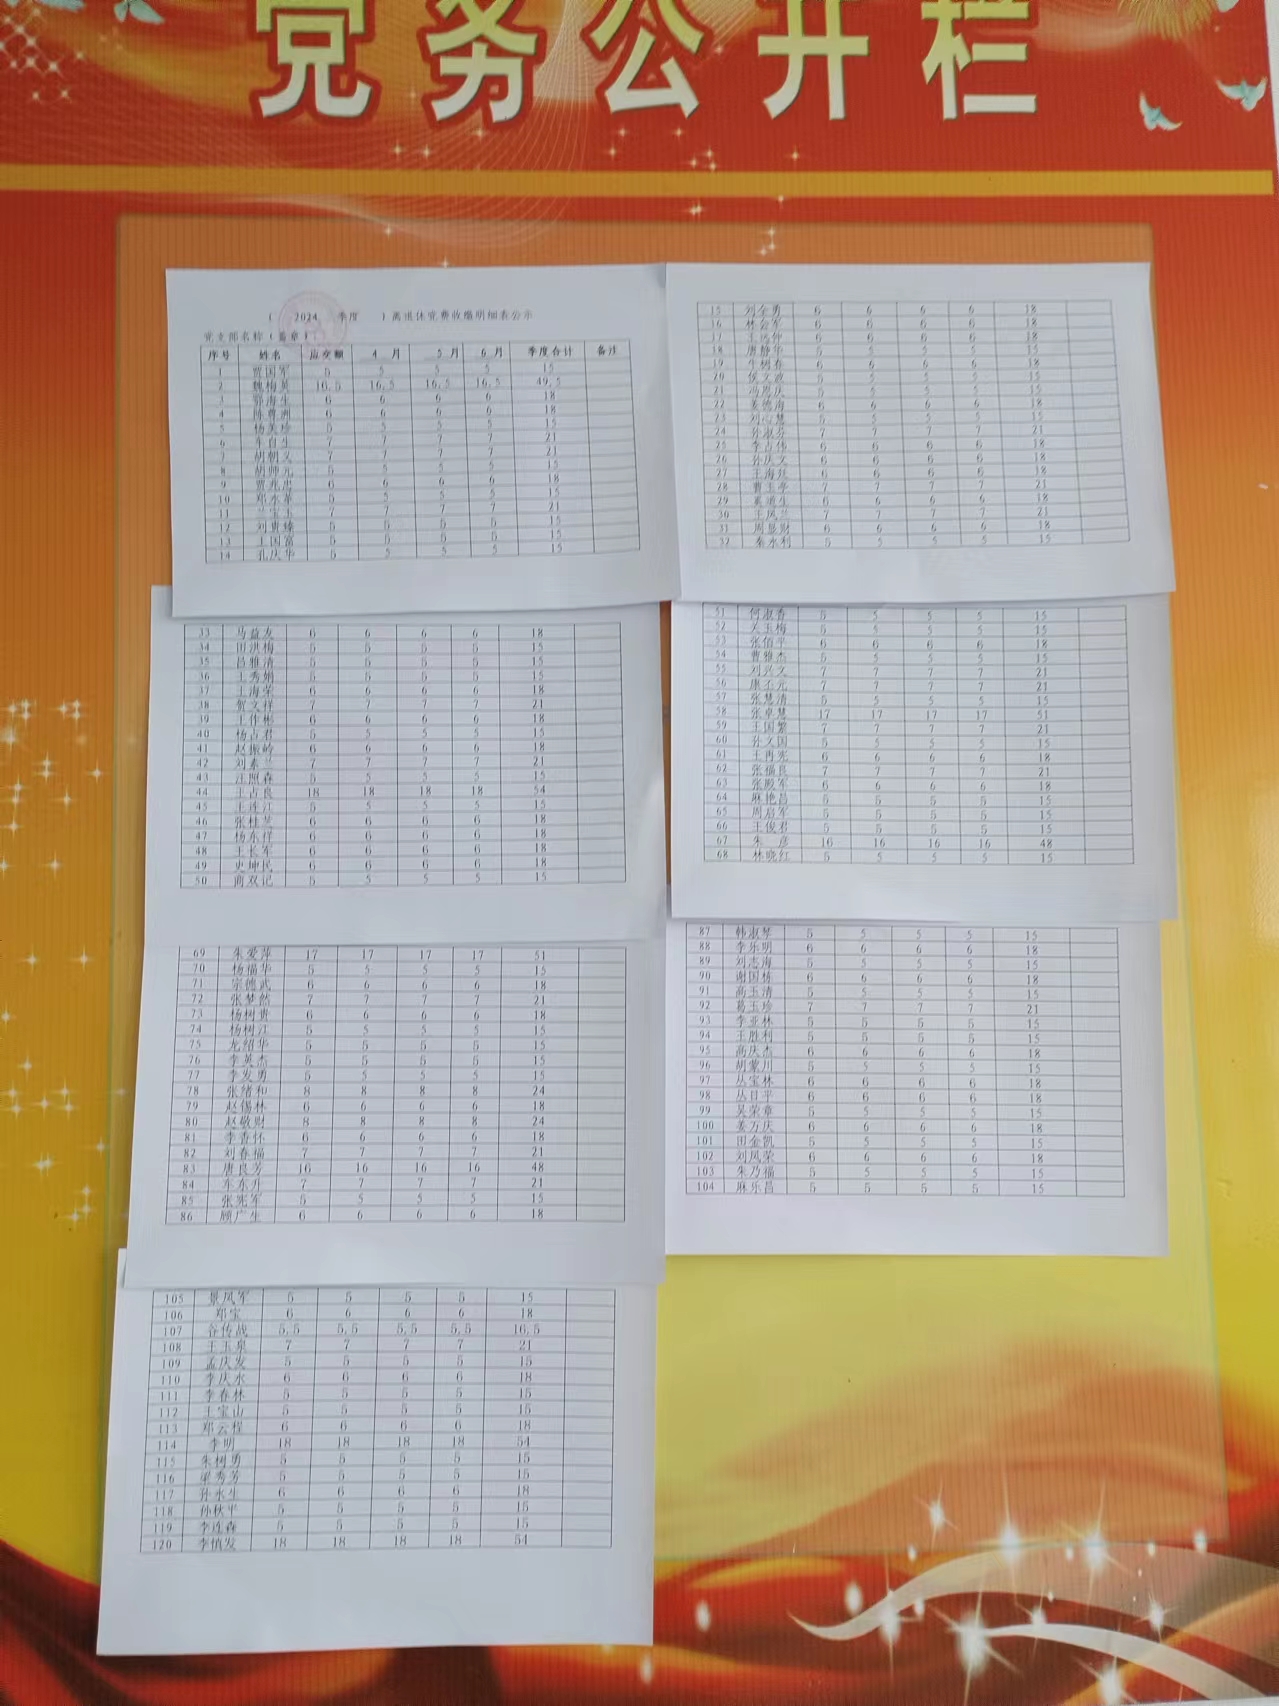 党务公开栏
( 2024 季度 )离退休党费收缴明细表公示
党支部名称(盖章)
序号 姓名 应交额 4 月 5 月 6 月 季度合计 备注
1 贾国军 5 5 5 5 15
2 魏梅英 16.5 16.5 16.5 16.5 49.5
3 鄂海生 6 6 6 6 18
4 6 6 6 6 18
5 杨美珍 5 5 5 5 15
6 车自生 7 7 7 7 21
7 胡朝义 7 7 7 7 21
8 胡帅元 5 5 5 5 15
9 贾兆忠 6 6 6 6 18
10 邓永革 5 5 5 5 15
11 兰宝玉 7 7 7 7 21
12 刘贵臻 5 5 5 5 15
13 王国富 5 5 5 5 15
14 孔庆华 5 5 5 5 15
15 刘全勇 6 6 6 6 18
16 林会军 6 6 6 6 18
17 6 6 6 6 18
18 唐静华 5 5 5 5 15
19 牛树春 6 6 6 6 18
20 侯文波 5 5 5 5 15
21 冯恩庆 5 5 5 5 15
22 姜德海 6 6 6 6 18
23 刘心慧 5 5 5 5 15
24 孙淑芬 7 7 7 7 21
25 李占伟 6 6 6 6 18
26 孙庆文 6 6 6 6 18
27 6 6 6 6 18
28 曹玉亭 7 7 7 7 21
29 奚道生 6 6 6 6 18
30 王凤兰 7 7 7 7 21
31 周显财 6 6 6 6 18
32 秦永利 5 5 5 5 15
33 马益友 6 6 6 6 18
34 田洪梅 5 5 5 5 15
35 吕雅清 5 5 5 5 15
36 王秀娟 5 5 5 5 15
37 王海荣 6 6 6 6 18
38 贺文祥 7 7 7 7 21
39 王作彬 6 6 6 6 18
40 杨占君 5 5 5 5 15
41 赵振岭 6 6 6 6 18
42 刘素兰 7 7 7 7 21
43 汪照森 5 5 5 5 15
44 王占良 18 18 18 18 54
45 王连江 5 5 5 5 15
46 张桂兰 6 6 6 6 18
47 杨东祥 6 6 6 6 18
48 王长军 6 6 6 6 18
49 史坤民 6 6 6 6 18
50 商双记 5 5 5 5 15
51 何淑香 5 5 5 5 15
52 关玉梅 5 5 5 5 15
53 张佰平 6 6 6 6 18
54 曹雅杰 5 5 5 5 15
55 刘兴文 7 7 7 7 21
56 康丕元 7 7 7 7 21
57 张慧清 5 5 5 5 15
58 张卓慧 17 17 17 17 51
59 王国繁 7 7 7 7 21
60 孙文国 5 5 5 5 15
61 王再宪 6 6 6 6 18
62 张福良 7 7 7 7 21
63 张殿军 6 6 6 6 18
64 麻艳昌 5 5 5 5 15
65 周启军 5 5 5 5 15
66 王俊君 5 5 5 5 15
67 朱 彦 16 16 16 16 48
68 林晓红 5 5 5 5 15
69 朱爱萍 17 17 17 17 51
70 杨福华 5 5 5 5 15
71 宗德武 6 6 6 6 18
72 张梦然 7 7 7 7 21
73 杨树贵 6 6 6 6 18
74 杨树江 5 5 5 5 15
75 龙绍华 5 5 5 5 15
76 李英杰 5 5 5 5 15
77 李发勇 5 5 5 5 15
78 张绪和 8 8 8 8 24
79 赵锡林 6 6 6 6 18
80 赵敬财 8 8 8 8 24
81 李香怀 6 6 6 6 18
82 刘春福 7 7 7 7 21
83 唐良芳 16 16 16 16 48
84 东东升 7 7 7 7 21
85 张宪军 5 5 5 5 15
86 顾广生 6 6 6 6 18
87 韩淑琴 5 5 5 5 15
88 李乐明 6 6 6 6 18
89 刘志海 5 5 5 5 15
90 谢国栋 6 6 6 6 18
91 高玉清 5 5 5 5 15
92 葛玉珍 7 7 7 7 21
93 李亚林 5 5 5 5 15
94 王胜利 5 5 5 5 15
95 高庆杰 6 6 6 6 18
96 胡蒙川 5 5 5 5 15
97 丛宝林 6 6 6 6 18
98 丛日平 6 6 6 6 18
99 吴荣章 5 5 5 5 15
100 姜万庆 6 6 6 6 18
101 田金凯 5 5 5 5 15
102 刘凤荣 6 6 6 6 18
103 朱乃福 5 5 5 5 15
104 麻乐昌 5 5 5 5 15
105 景凤军 5 5 5 5 15
106 郑宝 6 6 6 6 18
107 谷传战 5.5 5.5 5.5 5.5 16.5
108 王玉泉 7 7 7 7 21
109 孟庆发 5 5 5 5 15
110 李庆水 6 6 6 6 18
111 李春林 5 5 5 5 15
112 王宝山 5 5 5 5 15
113 郑云程 6 6 6 6 18
114 李明 18 18 18 18 54
115 朱树勇 5 5 5 5 15
116 梁秀芳 5 5 5 5 15
117 孙永生 6 6 6 6 18
118 孙秋平 5 5 5 5 15
119 李连森 5 5 5 5 15
120 李慎发 18 18 18 18 54